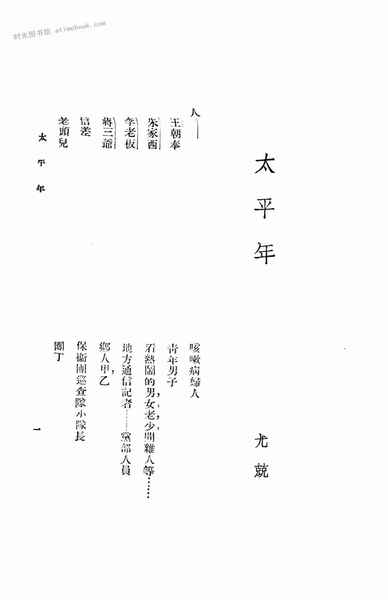 时光图书馆 etimebook.com
太平年
尤兢
人——
王朝奉
朱家酉
李老板
蔣三爺
信差
老頭兒
咳嗽病婦人
青年男子
看熱鬧的男，女，老，少，閒雜人等……
地方通信記者——黨部人員
鄉人甲，乙
保衞團巡查隊小隊長
團丁
太平年
一